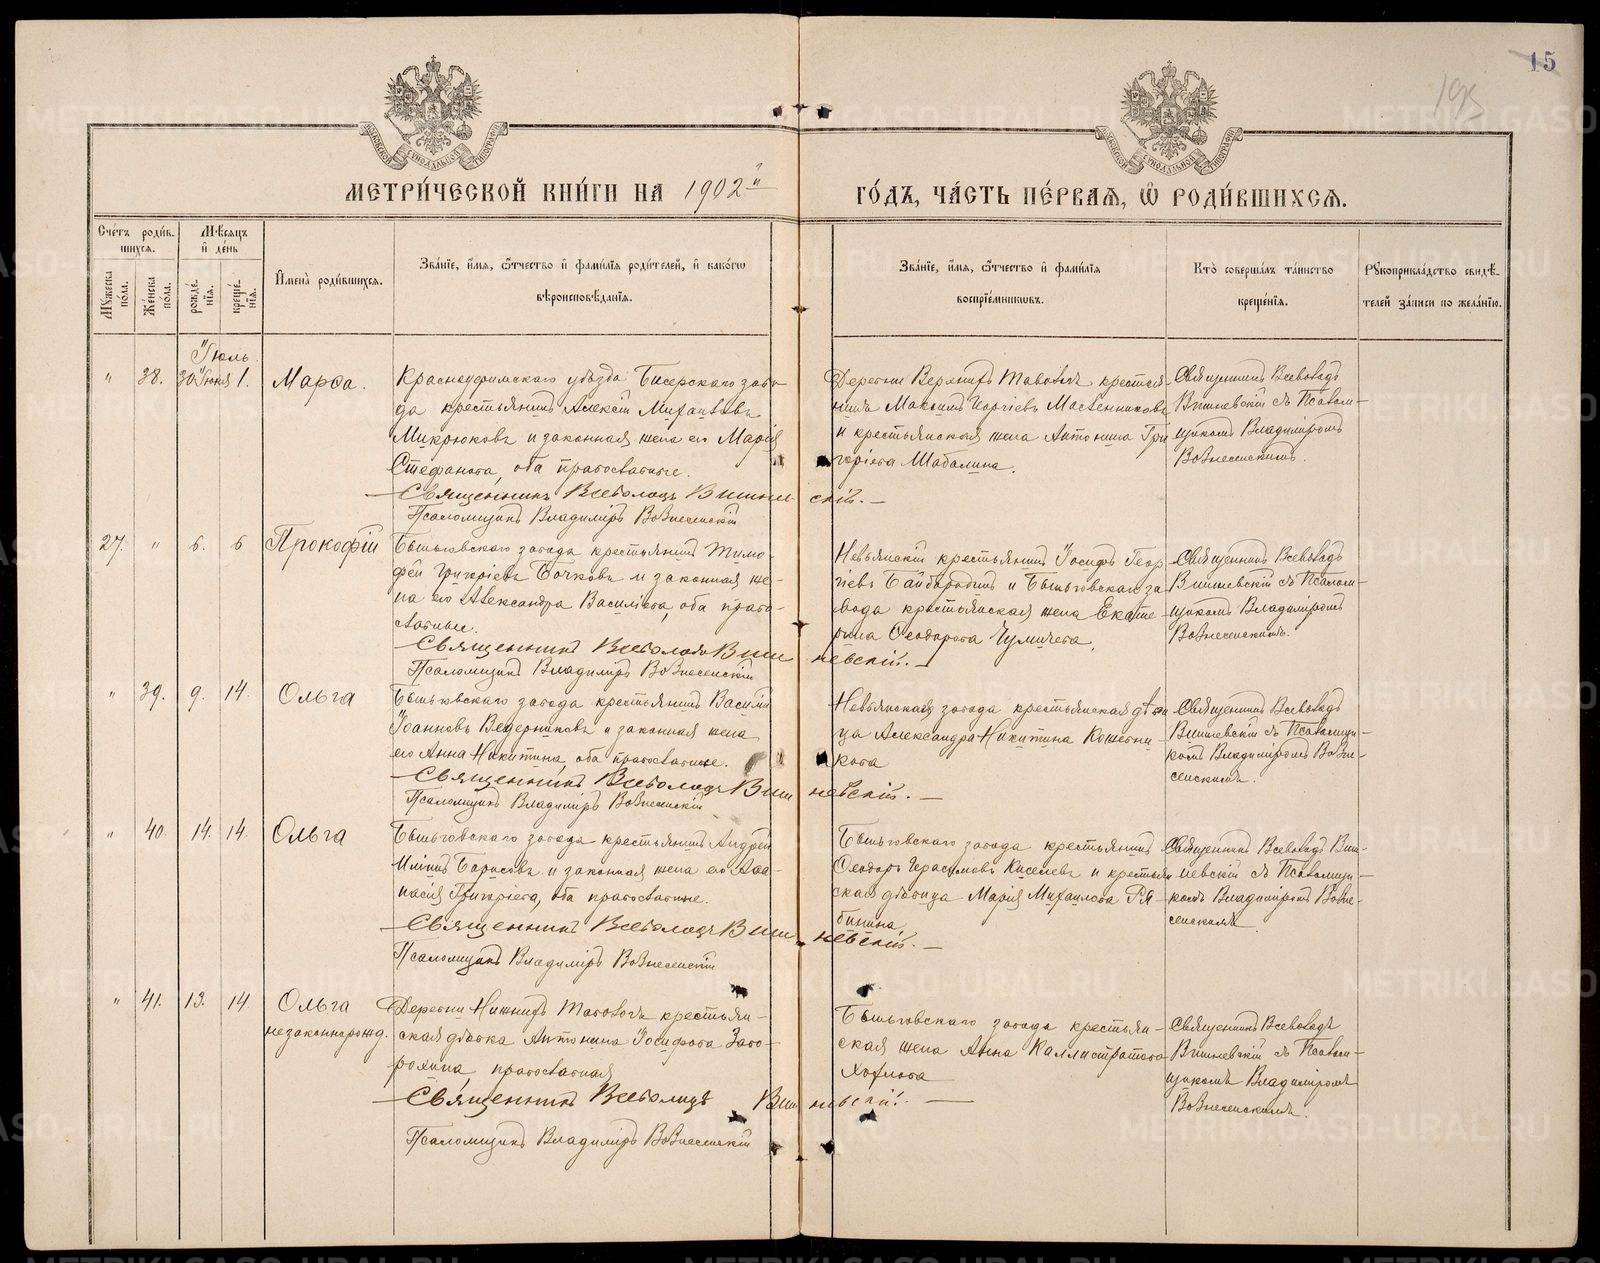 15
195
МЕТРИ́ЧЕСКОЙ КНИ́ГИ НА 1902й
ГО́ДЪ, ЧА́СТЬ ПЕ́РВАЯ, Ѡ РОДИ́ВШИХСЯ.
Сче́тъ роди́вшихся.
Му́жеска по́ла.
Же́нска по́ла.
Мѣ́сяцъ и де́нь
рожде́нїя.
креще́нїя.
Имена̀ роди́вшихся.
Зва́нїе, и́мя, ѻ́тчество и фами́лїя роди́телей, и како́гѡ
вѣроисповѣ́данїя.
Зва́нїе, и́мя, ѻ́тчество и фами́лїя
воспрїе́мниковъ.
Кто̀ соверша́лъ та́инство
креще́нїя.
Рукоприкла́дство свидѣ́-
телей за́писи по жела́нїю.
Іюль
" 38. 30 Іюня 1. Марѳа.
Красноуфимскаго уѣзда Бисерскаго заво-
да крестьянинъ Алексій Михаиловъ
Микрюковъ и законная жена его Марія
Стефанова, оба православные.
Священникъ Всеволодъ Вишневскій.
Псаломщикъ Владиміръ Вознесенскій
Деревни Верхнихъ Тавологъ крестья-
нинъ Максимъ Георгіевъ Масленниковъ
и крестьянская жена Антонина Гри
горіева Шабалина.
Священникъ Всеволодъ
Вишневскій съ Псалом-
щикомъ Владиміромъ
Вознесенскимъ.
27. " 6. 6 Прокофій
Быньговскаго завода крестьянинъ Тимо-
фей Григоріевъ Бочковъ и законная же-
на его Александра Василіева, оба право-
славные.
Священникъ Всеволодъ Вишневскій.
Псаломщикъ Владиміръ Вознесенскій
Невьянскій крестьянинъ Іосифъ Геор-
гіевъ Байбородинъ и Быньговскаго за
вода крестьянская жена Екате-
рина Ѳеодорова Чумичева.
Священникъ Всеволодъ
Вишневскій съ Псалом-
щикомъ Владиміромъ
Вознесенскимъ.
" 39. 9. 14. Ольга
Быньговскаго завода крестьянинъ Василій
Іоанновъ Ведерниковъ и законная жена
его Анна Никитина, оба православные.
Священникъ Всеволодъ Вишневскій.
Псаломщикъ Владиміръ Вознесенскій
Невьянскаго завода крестьянская дѣви
ца Александра Никитина
кова
Священникъ Всеволодъ
Вишневскій съ Псаломщи-
комъ Владиміромъ Возне-
сенскимъ.
" 40. 14. 14. Ольга
Быньговскаго завода крестьянинъ Андрей
Иліинъ Борисовъ и законная жена его Аѳа-
насія Григоріева, оба православные.
Священникъ Всеволодъ Вишневскій.
Псаломщикъ Владиміръ Вознесенскій
Быньговскаго завода крестьянинъ
Ѳеодоръ Герасимовъ Киселевъ и крестьян
ская дѣвица Марія Михаилова Ря-
бинина.
Священникъ Всеволодъ Виш-
невскій съ Псаломщи-
комъ Владиміромъ Возне-
сенскимъ.
" 41. 13. 14 Ольга
незаконнорожд.
Деревни Нижнихъ Тавологъ крестьян-
ская дѣвка Антонина Іосифова Заво-
рохина, православная
Священникъ Всеволодъ Вишневскій.
Псаломщикъ Владиміръ Вознесенскій
Быньговскаго завода крестьян-
ская жена Анна Каллистратова
Хохлова
Священникъ Всеволодъ
Вишневскій съ Псалом-
щикомъ Владиміромъ
Вознесенскимъ.
METRIKI.GASO-URAL.RU